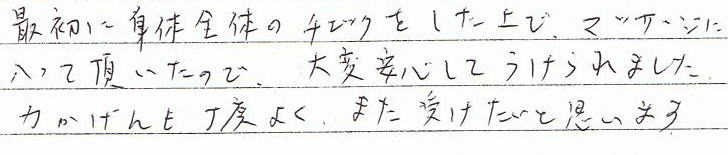 最初に身体全体のチェックをした上で、マッサージに
入って頂いたので、大変安心してうけられました。
力かげんも丁度よく、また受けたいと思います